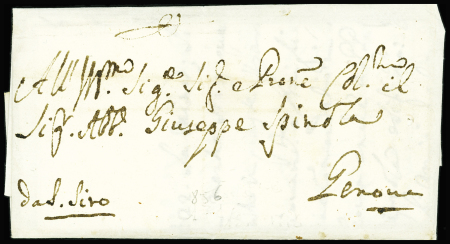 All' Ill.mo Sig.re Sig.r e Prone Col.mo il
Sig.r Abb.e Giuseppe Spinola
da S. Siro
Genova